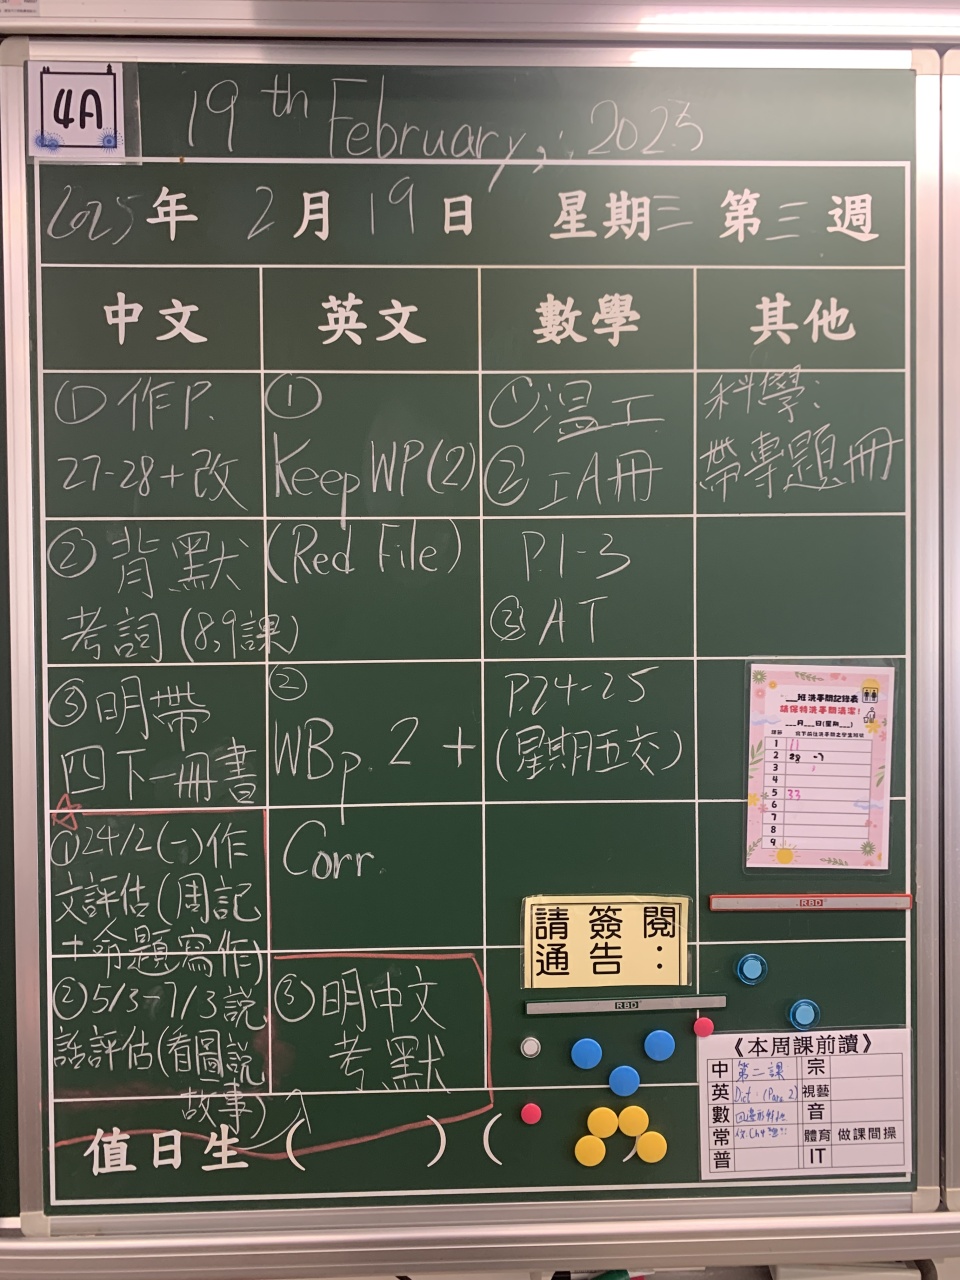 4A
19th February, 2025
2025年 2月19日 星期三 第三週
中文 英文 數學 其他
①作P.
27-28+改
②背默
考詞(8,9課)
③明帶
四下一冊書
☆
①24/2(一)作
文評估(周記
+命題寫作)
②5/3-7/3說
話評估(看圖說
故事)
①
Keep WP(2)
(Red File)
②
WB p. 2 +
Corr.
③明中文
考默
①温工
②工A冊
P.1-3
③AT
P.24-25
(星期五交)
科學:
帶專題冊
___班洗手間記錄表
請保持洗手間清潔!
___月___日(星期___)
1 11
2 28 -7
3
4
5 33
6
7
8
9
RBD
請簽閱
通告:
RBD
值日生 ( ) ( )
《本周課前讀》
中 第二課 宗
英 Dict: (Para 2) 視藝
數 音
常 體育 做課間操
普 IT